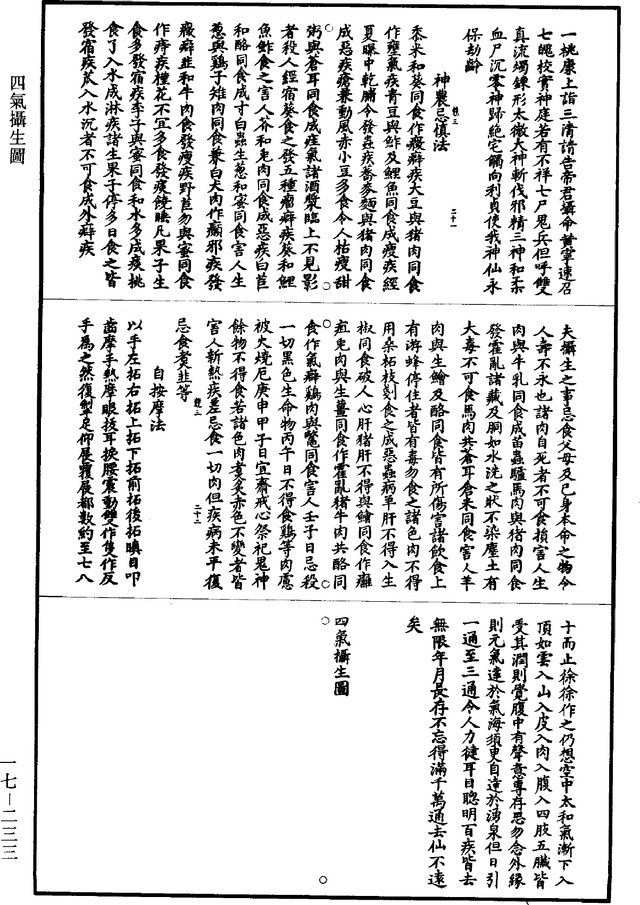 四氣攝生圖
一桃康上詣三清請告帝君攝命黃寧速召
七魄校實神庭若有不祥七尸鬼兵但呼雙
真流燭鍊形太微大神斬伐邪精三神和柔
血尸沉零神歸絶宅觸向利貞使我神仙永
保劫齡
神農忌慎法
黍米和葵同食作癥癖疾大豆與猪肉同食
作壅氣疾青豆與鮓及鯉魚同食成瘦疾經
夏曝中乾脯令發蟲疾蕎麥麵與猪肉同食
成惡疾癥兼動風赤小豆多食令人枯瘦甜
粥與蒼耳同食成疰氣諸酒漿臨上不見影
者殺人經宿葵食之發五種瘤癖疾葵和鯉
魚鮓食之害人芥和兎肉同食成惡疾白苣
和酪同食成寸白蟲生葱和蜜同食害人生
葱與鷄子雉肉同食兼白犬肉作癲邪疾發
癥癖韮和牛肉食發瘦疾野苣勿與蜜同食
作痔疾橦花不宜多食發痰饒睡凡果子生
食多發宿疾李子與蜜同食和水多成痰桃
食了入水成淋疾諸生果子停多日食之皆
發宿疾苽入水沉者不可食成外癖疾
夫攝生之事忌食父母及己身本命之物令
人壽不永也諸肉自死者不可食損害人生
肉與牛乳同食成苗蟲驢馬肉與猪肉同食
發霍亂諸藏及胴如水洗之狀不染塵土有
大毒不可食馬肉共蒼耳倉米同食害人羊
肉與生鱠及酪同食皆有所傷害諸飲食上
有游蜂停住者皆有毒勿食之諸色肉不得
用桑柘枝刻食之成惡蟲病羊肝不得入生
椒同食破人心肝猪肝不得與鱠同食作癰
疽兎肉與生薑同食作霍亂猪牛肉共酪同
食作氣癖鷄肉與鱉同食害人壬子日忌殺
一切黑色生命物丙午日不得食鷄等肉處
被火燒厄庚申甲子日宜齋戒心祭祀鬼神
餘物不得食若諸色肉煮炙赤色不變者皆
害人斬熱疾差忌食一切肉但疾病未平復
忌食煮韮等
自按摩法
以手左拓右拓上拓下拓前拓後拓瞋目叩
齒摩手熱摩眼技耳挨腰震動雙作隻作反
手爲之然復掣足仰展覆展都數約至七八
十而止徐徐作之仍想空中太和氣漸下入
頂如雲入山入皮入肉入腹入四肢五臟皆
受其潤則覺腹中有聲意專存思勿念外緣
則元氣達於氣海須更自達於湧泉但日引
一通至三通令人力徤耳目聰明百疾皆去
無限年月長存不忘得滿千萬通去仙不遠
矣
四氣攝生圖
一七—二三三